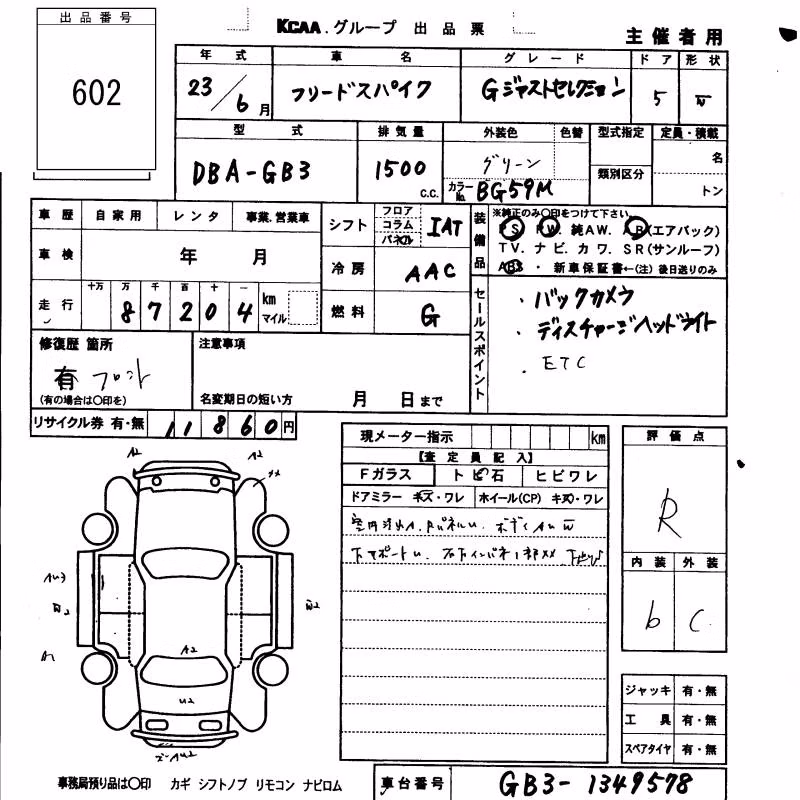 出品番号
602
KCAA.グループ 出品票
主催者用
年式 車名 グレード ドア 形状
23/6月 フリードスパイク Gジャストセレクション 5 W
型式 排気量 外装色 色替 型式指定 定員・積載
DBA-GB3 1500 c.c. グリーン 類別区分 名
カラーNo. BG59M トン
車歴 自家用 レンタ 事業.営業車
車検 年 月
走行 十万 万 千 百 十 一
8 7 2 0 4 km マイル
シフト フロア コラム パネル IAT
冷房 AAC
燃料 G
装備品
※純正のみ〇印をつけて下さい。
PS. PW. 純AW. AB(エアバック)
TV. ナビ. カワ. SR(サンルーフ)
ABS ・ 新車保証書←(注)後日送りのみ
セールスポイント
・バックカメラ
・ディスチャージヘッドライト
・ETC
修復歴 箇所
有 フロント
(有の場合は〇印を)
注意事項
名変期日の短い方 月 日まで
リサイクル券 有・無 11860円
現メーター指示 km
【査定員記入】
Fガラス トビ石 ヒビワレ
ドアミラー キズ・ワレ ホイール(CP) キズ・ワレ
評価点
R
内装 外装
b C
A2 A2
AU3
A1
A2
U2
ジャッキ 有・無
工具 有・無
スペアタイヤ 有・無
事務局預り品は〇印 カギ シフトノブ リモコン ナビロム
車台番号 GB3-1349578